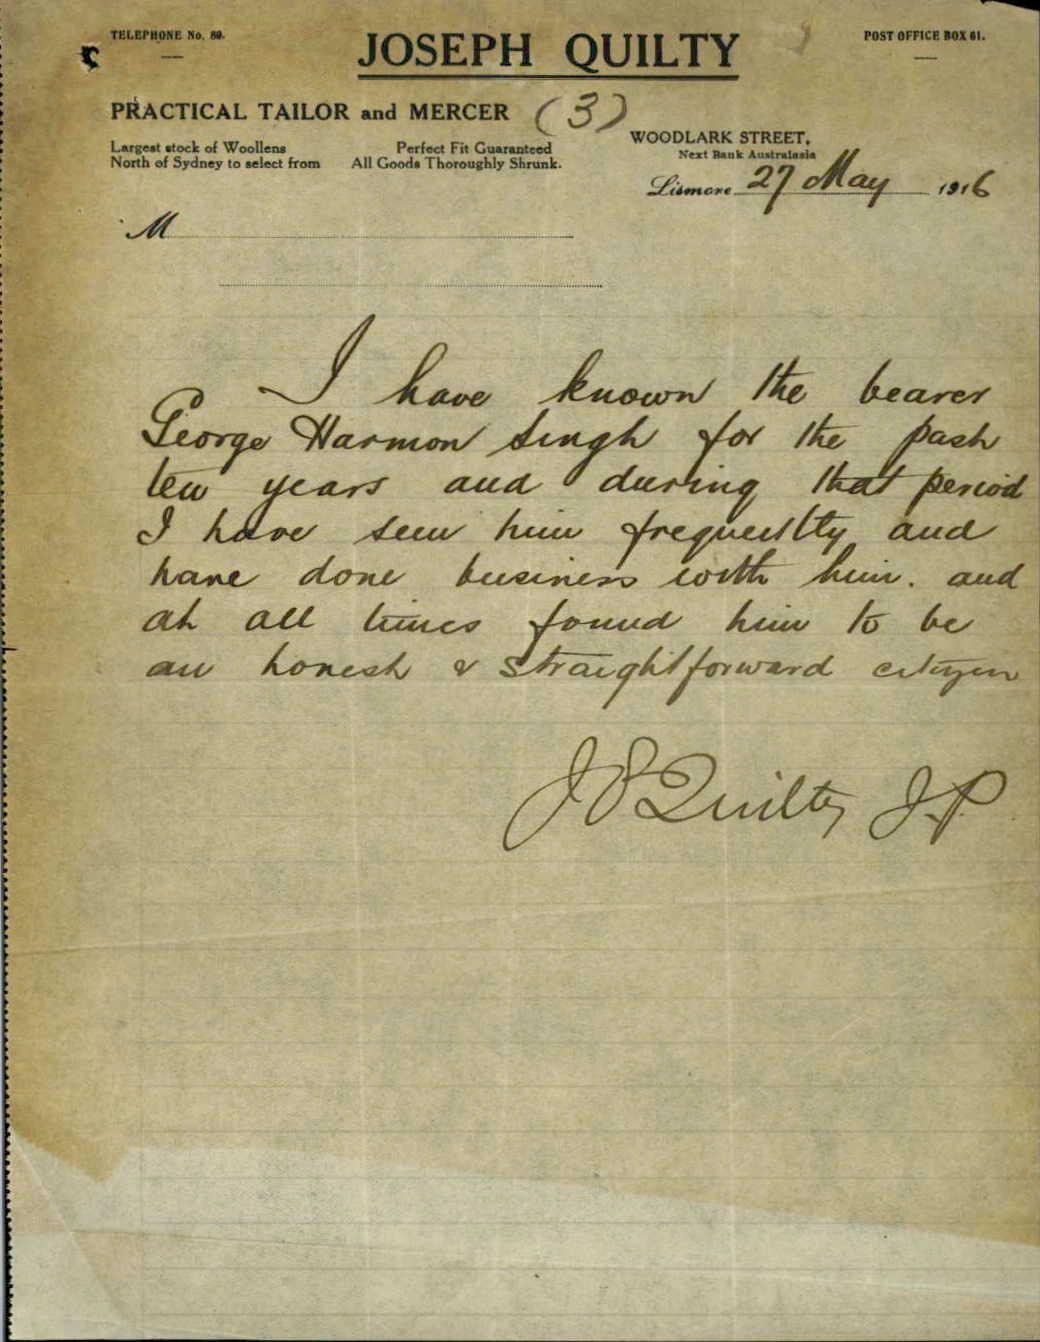 TELEPHONE No. 80.
JOSEPH QUILTY
POST OFFICE BOX 61.
PRACTICAL TAILOR and MERCER
(3)
Largest stock of Woollens
North of Sydney to select from
Perfect Fit Guaranteed
All Goods Thoroughly Shrunk.
WOODLARK STREET,
Next Bank Australasia
Lismore 27 May 1916
M
I have known the bearer
George Harmon Singh for the past
ten years and during that period
I have seen him frequently and
have done business with him. and
at all times found him to be
an honest & straightforward citizen
J P Quilty J.P.